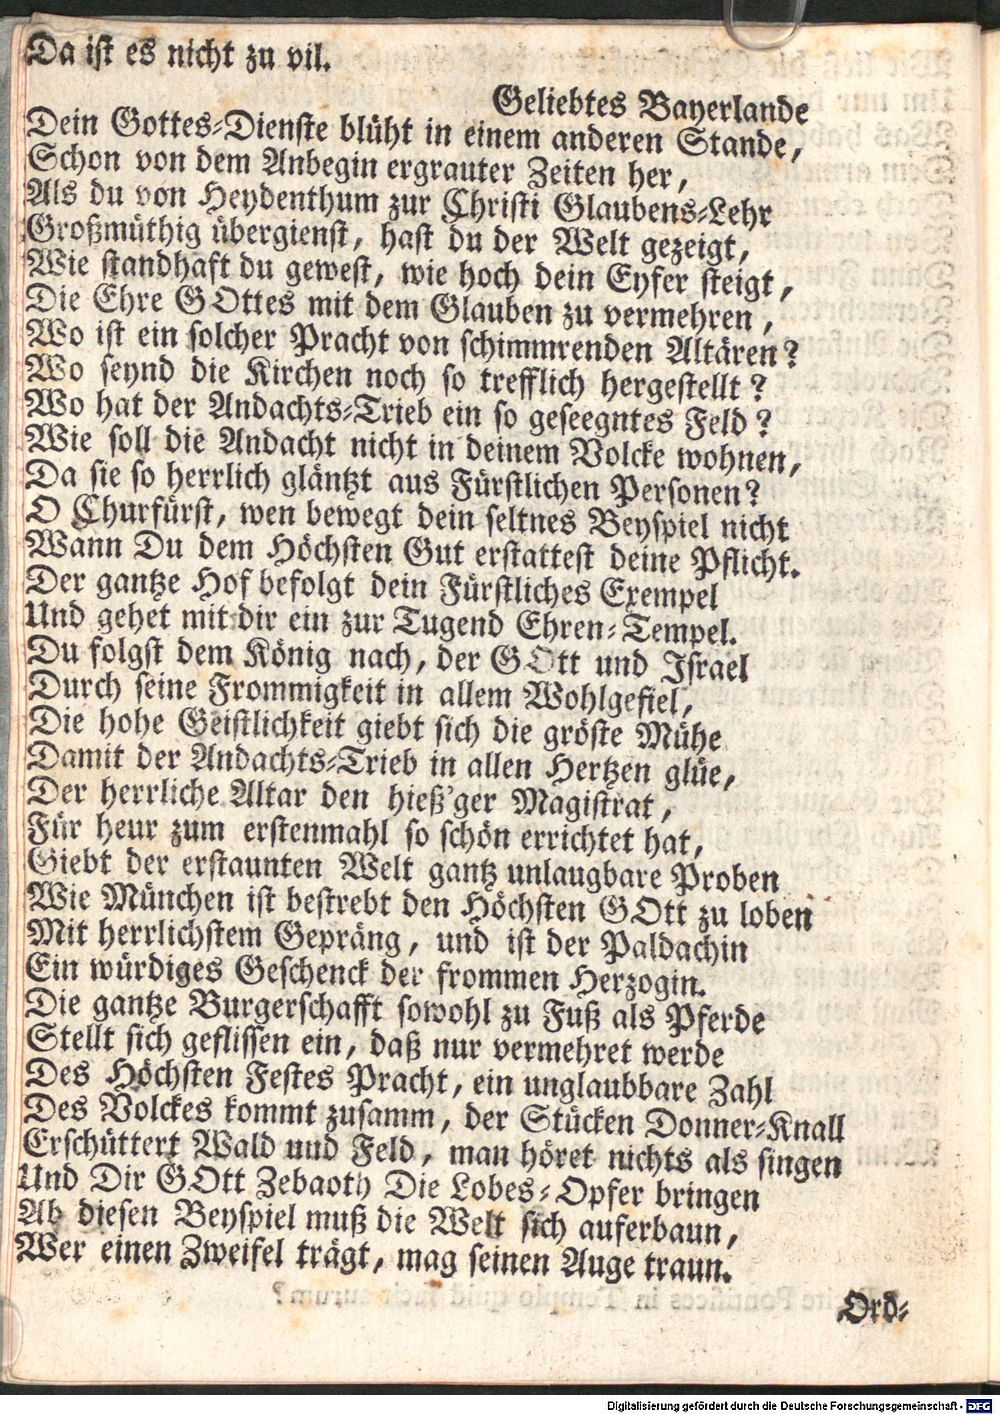 Da ist es nicht zu vil.
Geliebtes Bayerlande
Dein Gottes-Dienste blüht in einem anderen Stande,
Schon von dem Anbegin ergrauter Zeiten her,
Als du von Heydenthum zur Christi Glaubens-Lehr
Großmüthig übergienst, hast du der Welt gezeigt,
Wie standhaft du gewest, wie hoch dein Eyfer steigt,
Die Ehre GOttes mit dem Glauben zu vermehren,
Wo ist ein solcher Pracht von schimmrenden Altären?
Wo seynd die Kirchen noch so trefflich hergestellt?
Wo hat der Andachts-Trieb ein so geseegntes Feld?
Wie soll die Andacht nicht in deinem Volcke wohnen,
Da sie so herrlich gläntzt aus Fürstlichen Personen?
O Churfürst, wen bewegt dein seltnes Beyspiel nicht
Wann Du dem Höchsten Gut erstattest deine Pflicht.
Der gantze Hof befolgt dein Fürstliches Exempel
Und gehet mit dir ein zur Tugend Ehren-Tempel.
Du folgst dem König nach, der GOtt und Israel
Durch seine Frommigkeit in allem Wohlgefiel,
Die hohe Geistlichkeit giebt sich die gröste Mühe
Damit der Andachts-Trieb in allen Hertzen glüe,
Der herrliche Altar den hieß'ger Magistrat,
Für heur zum erstenmahl so schön errichtet hat,
Giebt der erstaunten Welt gantz unlaugbare Proben
Wie München ist bestrebt den Höchsten GOtt zu loben
Mit herrlichstem Gepräng, und ist der Paldachin
Ein würdiges Geschenck der frommen Herzogin.
Die gantze Burgerschafft sowohl zu Fuß als Pferde
Stellt sich geflissen ein, daß nur vermehret werde
Des Höchsten Festes Pracht, ein unglaubbare Zahl
Des Volckes kommt zusamm, der Stücken Donner-Knall
Erschüttert Wald und Feld, man höret nichts als singen
Und Dir GOtt Zebaoth Die Lobes-Opfer bringen
Ab diesen Beyspiel muß die Welt sich auferbaun,
Wer einen Zweifel trägt, mag seinen Auge traun.
Ord-
Digitalisierung gefördert durch die Deutsche Forschungsgemeinschaft - DFG